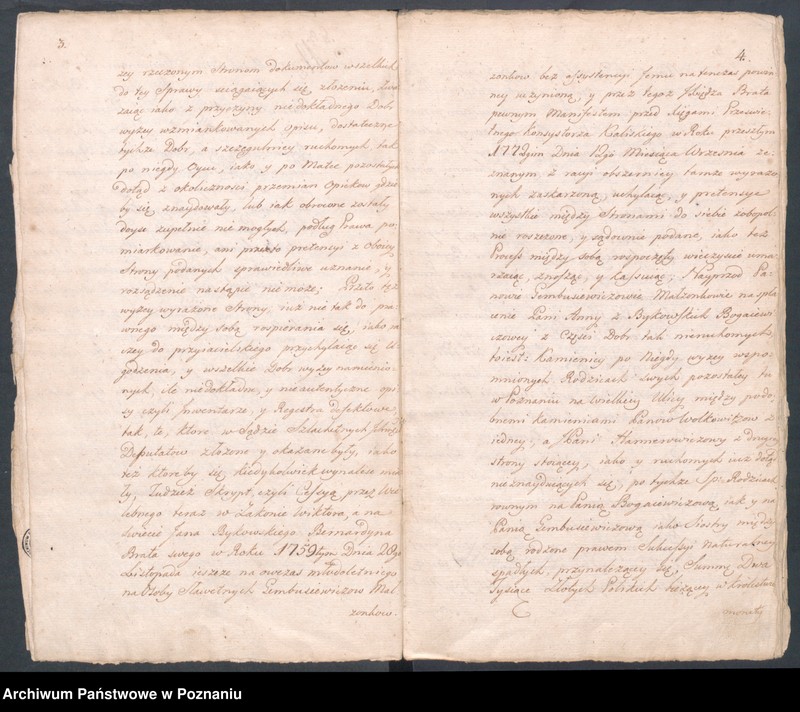 3.
zey rzeczonym Stronom dokumentow wszelkich
do tey Sprawy sciągaiących się złożeniu, zwa
żaiąc iako z przyczyny niedokładnego Dobr
wyżey wzmiankowanych opisu, dostateczne
tychże Dobr, a szczegulniey ruchomych, tak
po niegdy Oycu, iako y po Matce pozostałych
dotąd z okoliczności przemian Opiekow gdzie
by się znaydowały, lub iak obrocone zostały
doyść zupełnie nie mogłych, podług Prawa po
miarkowanie, ani przeto pretensyi z Oboiey
Strony podanych sprawiedliwe uznanie, y
rozsądzenie nastąpić nie może; Przeto też
wyżey wyrażone Strony, iuż nie tak do pra
wnego między sobą rospierania się, iako ra
czey do przyiacielskiego przychylaiąc się U
godzenia, y wszelkie Dobr wyżey namienio
nych, ile niedokładne, y nieautentyczne opi
sy czyli Inwentarze, y Regestra defektowe,
tak, te, ktore w Sądzie Szlachetnych
Deputatow złożone y okazane były, iako
też ktoreby się kiedykolwiek wynaleść mia
ły, Tudzież Skrypt, czyli Cessyą przez Wie
lebnego teraz w Zakonie Wiktora, a na
świecie Jana Bykowskiego Bernardyna
Brata swego w Roku 1759tym Dnia 28go
Listopada ieszcze na owczas młodoletniego
na Osoby Sławetnych Gembusiewiczow Mał
żonkow.
4.
żonkow bez assystencyi Jemu natenczas powin
ney uczynioną, y przez tegoż Xiędza Brata
pewnym Manifestem przed Xięgami Prześwie
tnego Konsystorza Kaliskiego w Roku przeszłym
1772gim Dnia 12go Miesiąca Września ze
znanym z racyi obszerniey tamże wyrażo
nych zaskarżoną, uchylaiąc, y pretensye
wszystkie między Stronami do siebie zobopol
nie roszczone, y sądownie podane, iako też
Process między sobą rospoczęty wieczyście uma
rzaiąc, znosząc, y kassuiąc; Nayprzod Pa
nowie Gembusiewiczowie Małżonkowie na spła
cenie Pani Anny z Bykowskich Bogaiewi
czowey z Części Dobr tak nieruchomych,
to iest: Kamienicy po Niegdy wyżey wspo
mnionych Rodzicach swych pozostałey tu
w Poznaniu na Wielkiey Ulicy między podo
bnemi kamienicami Panow Wolkowitzow z
iedney, a Pani Hamerowiczowy z drugiey
strony stoiącey, iako y ruchomych iuż dotąd
nieznayduiących się, po tychże Sp: Rodzicach
rownym na Panią Bogaiewiczową, iak y na
Panią Gembusiewiczową iako Siostry między
sobą rodzone prawem Sukcessyi Naturalney
spadłych, przynależącey się, Summę Dwa
Tysiące Złotych Polskich bieżącey w Krolestwie
monety
Archiwum Państwowe w Poznaniu